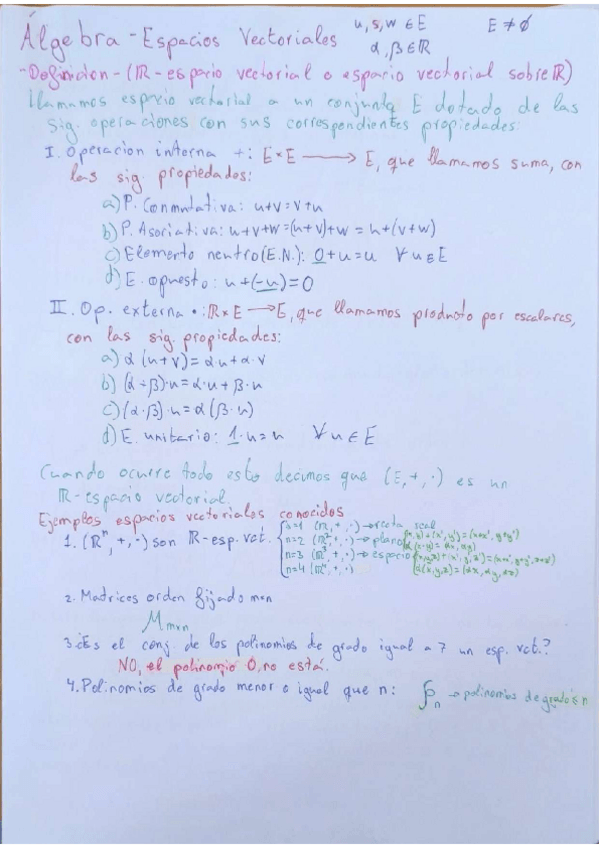 Álgebra - Espacios Vectoriales u, s, w ∈ E E ≠ ∅
α, β ∈ ℝ
- Definicion - (ℝ - espacio vectorial o espacio vectorial sobre ℝ)
Llamamos espacio vectorial a un conjunto E dotado de las
sig. operaciones con sus correspondientes propiedades:
I. Operacion interna +: E×E ⟶ E, que llamamos suma, con
las sig. propiedades:
a) P. Conmutativa: u+v=v+u
b) P. Asociativa: u+v+w=(u+v)+w = u+(v+w)
c) Elemento neutro (E.N.): 0+u=u ∀u∈E
d) E. opuesto: u+(-u)=0
II. Op. externa •: ℝ×E ⟶ E, que llamamos producto por escalares,
con las sig. propiedades:
a) α (u+v)=αu+α·v
b) (α+β)·u=α·u+β·u
c) (α·β)·u=α(β·u)
d) E. unitario: 1·u=u ∀u∈E
Cuando ocurre todo esto decimos que (E,+,·) es un
ℝ-espacio vectorial.
Ejemplos espacios vectoriales conocidos
1. (ℝⁿ, +, ·) son ℝ-esp. vct.
n=1 (ℝ, +, ·) → recta
n=2 (ℝ², +, ·) → plano (x,y)+(x',y')=(x+x', y+y')
α(x,y)=(αx, αy)
n=3 (ℝ³, +, ·) → espacio (x,y,z)+(x',y',z')=(x+x', y+y', z+z')
n=4 (ℝ⁴, +, ·) α(x,y,z)=(αx, αy, αz)
2. Matrices orden fijado m×n
M m×n
3. ¿Es el conj. de los polinomios de grado igual a 7 un esp. vct.?
NO, el polinomio 0, no está.
4. Polinomios de grado menor o igual que n: ℘n → polinomios de grado ≤ n